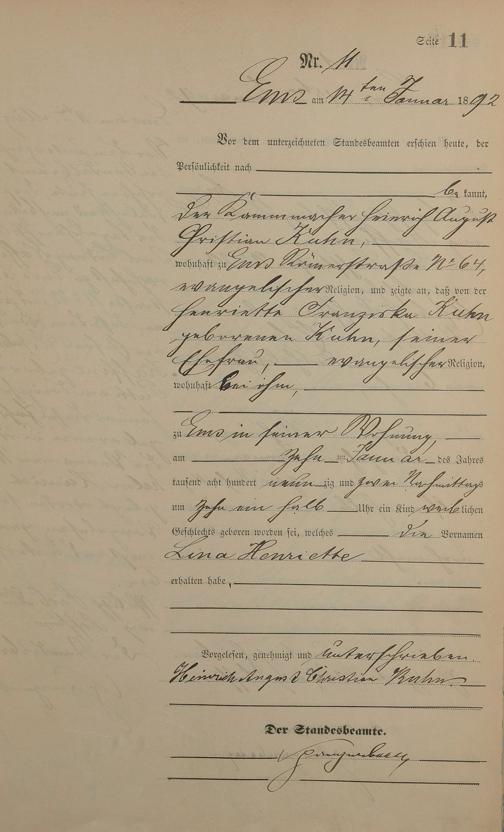 Seite 11
Nr. 11
Ems am 14ten Januar 1892
Vor dem unterzeichneten Standesbeamten erschien heute, der
Persönlichkeit nach
be kannt,
der Kammmacher Heinrich August
Christian Kuhn,
wohnhaft zu Ems Römerstraße No 64,
evangelischer Religion, und zeigte an, daß von der
Henriette Franziska Kuhn
geborenen Kuhn, seiner
Ehefrau, evangelischer Religion,
wohnhaft bei ihm,
zu Ems in seiner Wohnung,
am Zehn ten Januar des Jahres
tausend acht hundert neun zig und zwei Nachmittags
um Zehn ein halb Uhr ein Kind weib lichen
Geschlechts geboren worden sei, welches die Vornamen
Lina Henriette
erhalten habe,
Vorgelesen, genehmigt und unterschrieben.
Heinrich August Christian Kuhn.
Der Standesbeamte.